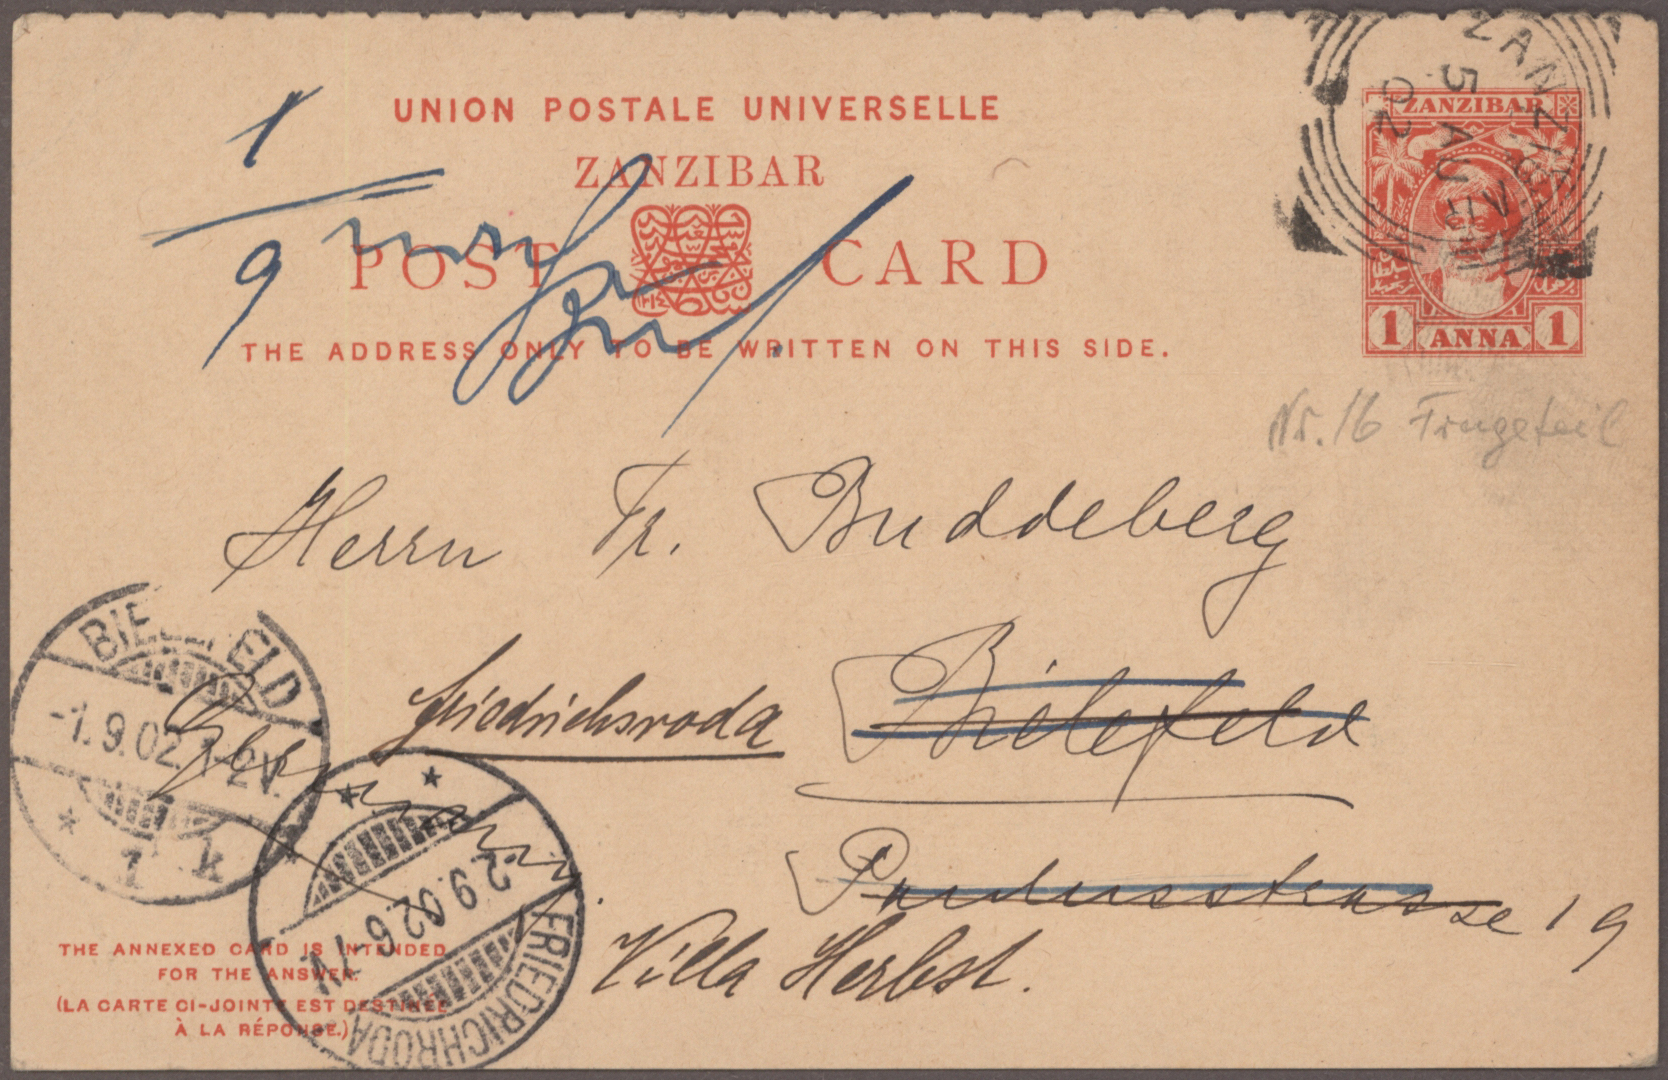 UNION POSTALE UNIVERSELLE
ZANZIBAR
POST CARD
THE ADDRESS ONLY TO BE WRITTEN ON THIS SIDE.
ZANZIBAR
5 AU
02
ZANZIBAR
1 ANNA 1
1
9
Nr. 16 Frageteil
Herrn Fr. Buddeberg
Bielefeld
Friedrichsroda
Paulusstrasse 19
Villa Herbst.
Germany
BIELEFELD
-1.9.02.1-2V.
* 1 k
* *
2.9.02.6-7V.
FRIEDRICHRODA
THE ANNEXED CARD IS INTENDED
FOR THE ANSWER.
(LA CARTE CI-JOINTE EST DESTINÉE
À LA RÉPONSE.)